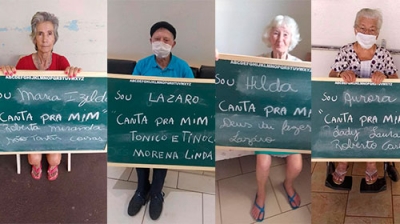 Sou Maria Izilda
CANTA PRA MIM
Roberta Miranda
Sou LAZARO
CANTA PRA MIM
TONICO E TINOCO
MORENA LINDA
Sou Hilda
CANTA PRA MIM
Lazaro
Sou Aurora
CANTA PRA MIM
Lady Laura
Roberto